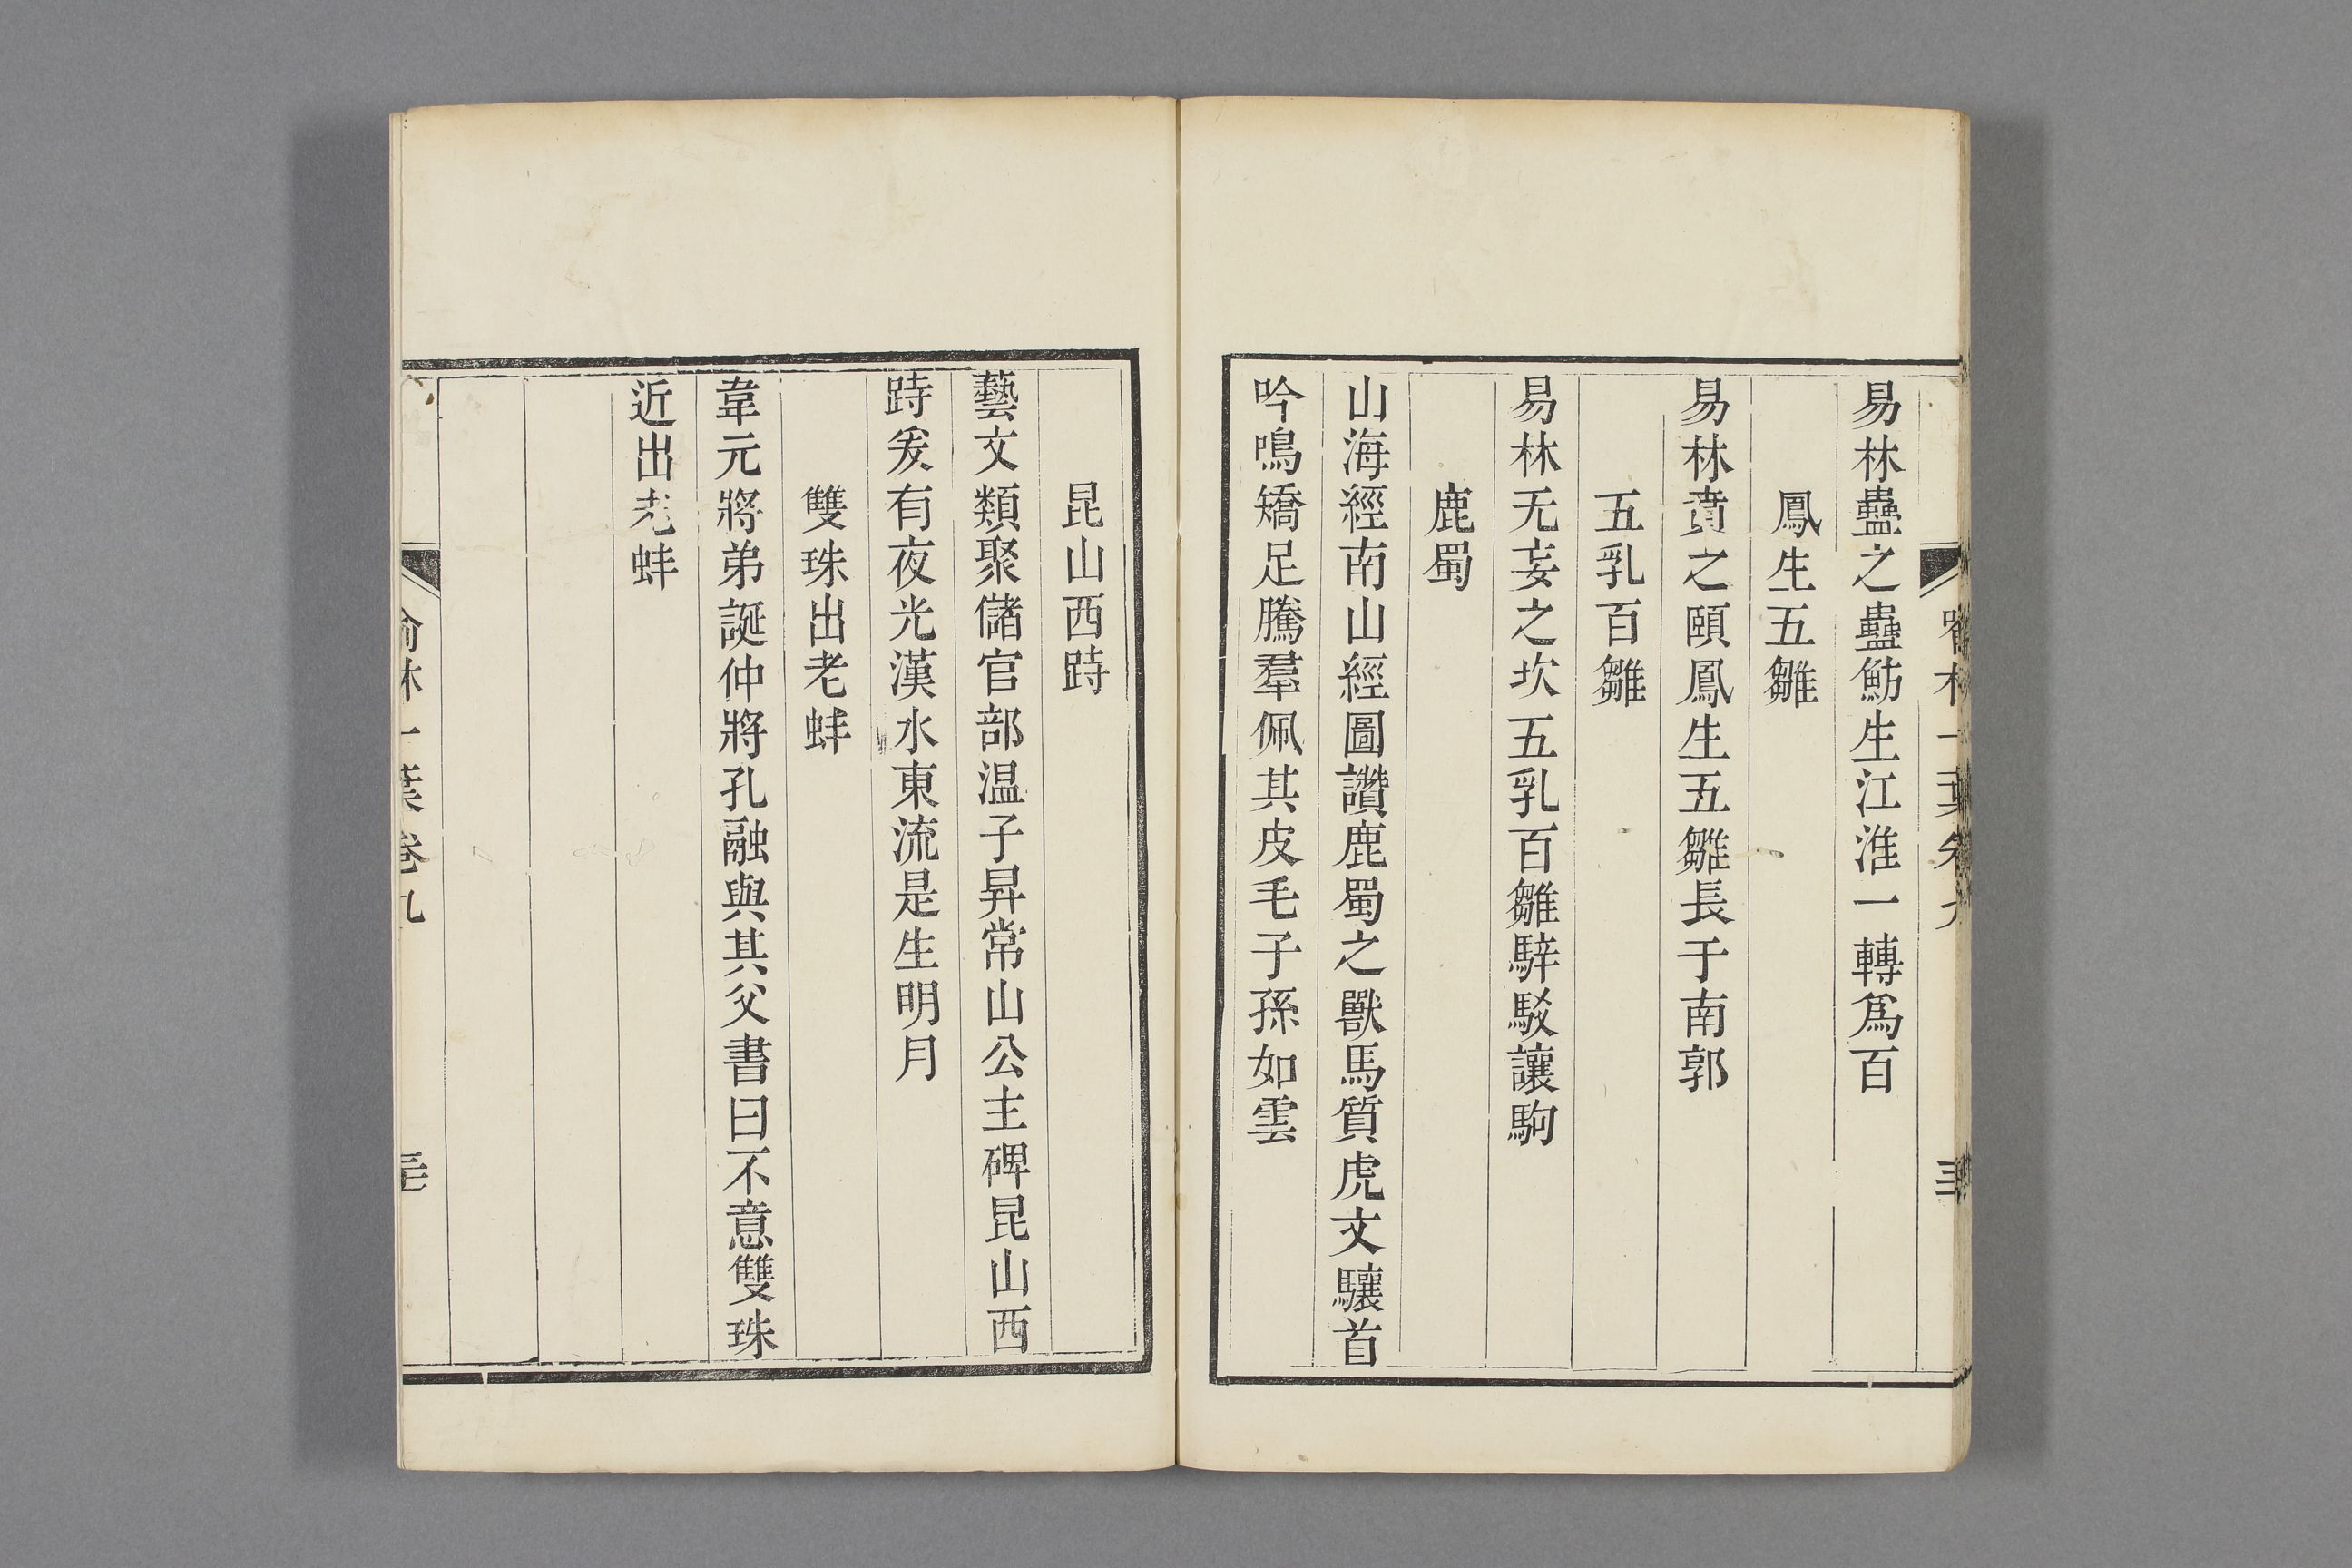 易林蠱之蠱魴生江淮一轉爲百
鳳生五雛
易林賁之頤鳳生五雛長于南郭
五乳百雛
易林无妄之坎五乳百雛騂駁讓駒
鹿蜀
山海經南山經圖讚鹿蜀之獸馬質虎文驤首
吟鳴矯足騰羣佩其皮毛子孫如雲
昆山西跱
藝文類聚儲官部温子昇常山公主碑昆山西
跱爰有夜光漢水東流是生明月
雙珠出老蚌
韋元將弟誕仲將孔融與其父書曰不意雙珠
近出老蚌
喻林一葉卷九